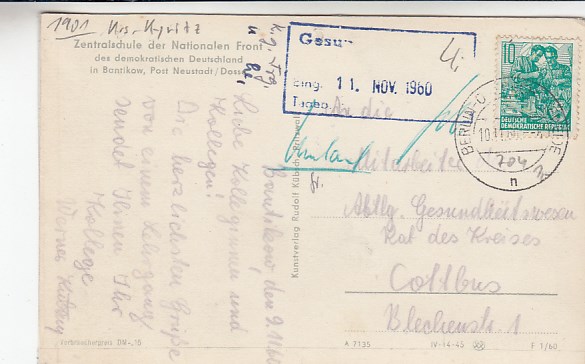 1901 Krs. Kyritz
Zentralschule der Nationalen Front
des demokratischen Deutschland
in Bantikow, Post Neustadt/Dosse
Bantikow, den 9.11.60
Liebe Kolleginnen und
Kollegen!
Die herzlichsten Grüße
von einem Lehrgang
sendet Ihnen Ihr
Kollege
Werner
Verbraucherpreis DM -,15
Kunstverlag Rudolf Kübach
Gesun
Eing. 11. NOV. 1960
Tagob.
10
DEUTSCHE
DEMOKRATISCHE REPUBLIK
BERLIN
704
n
An die
Mitarbeiter
Abtlg. Gesundheitswesen
Rat des Kreises
Cottbus
Blechenstr. 1
A 7135 IV-14-45 F 1/60